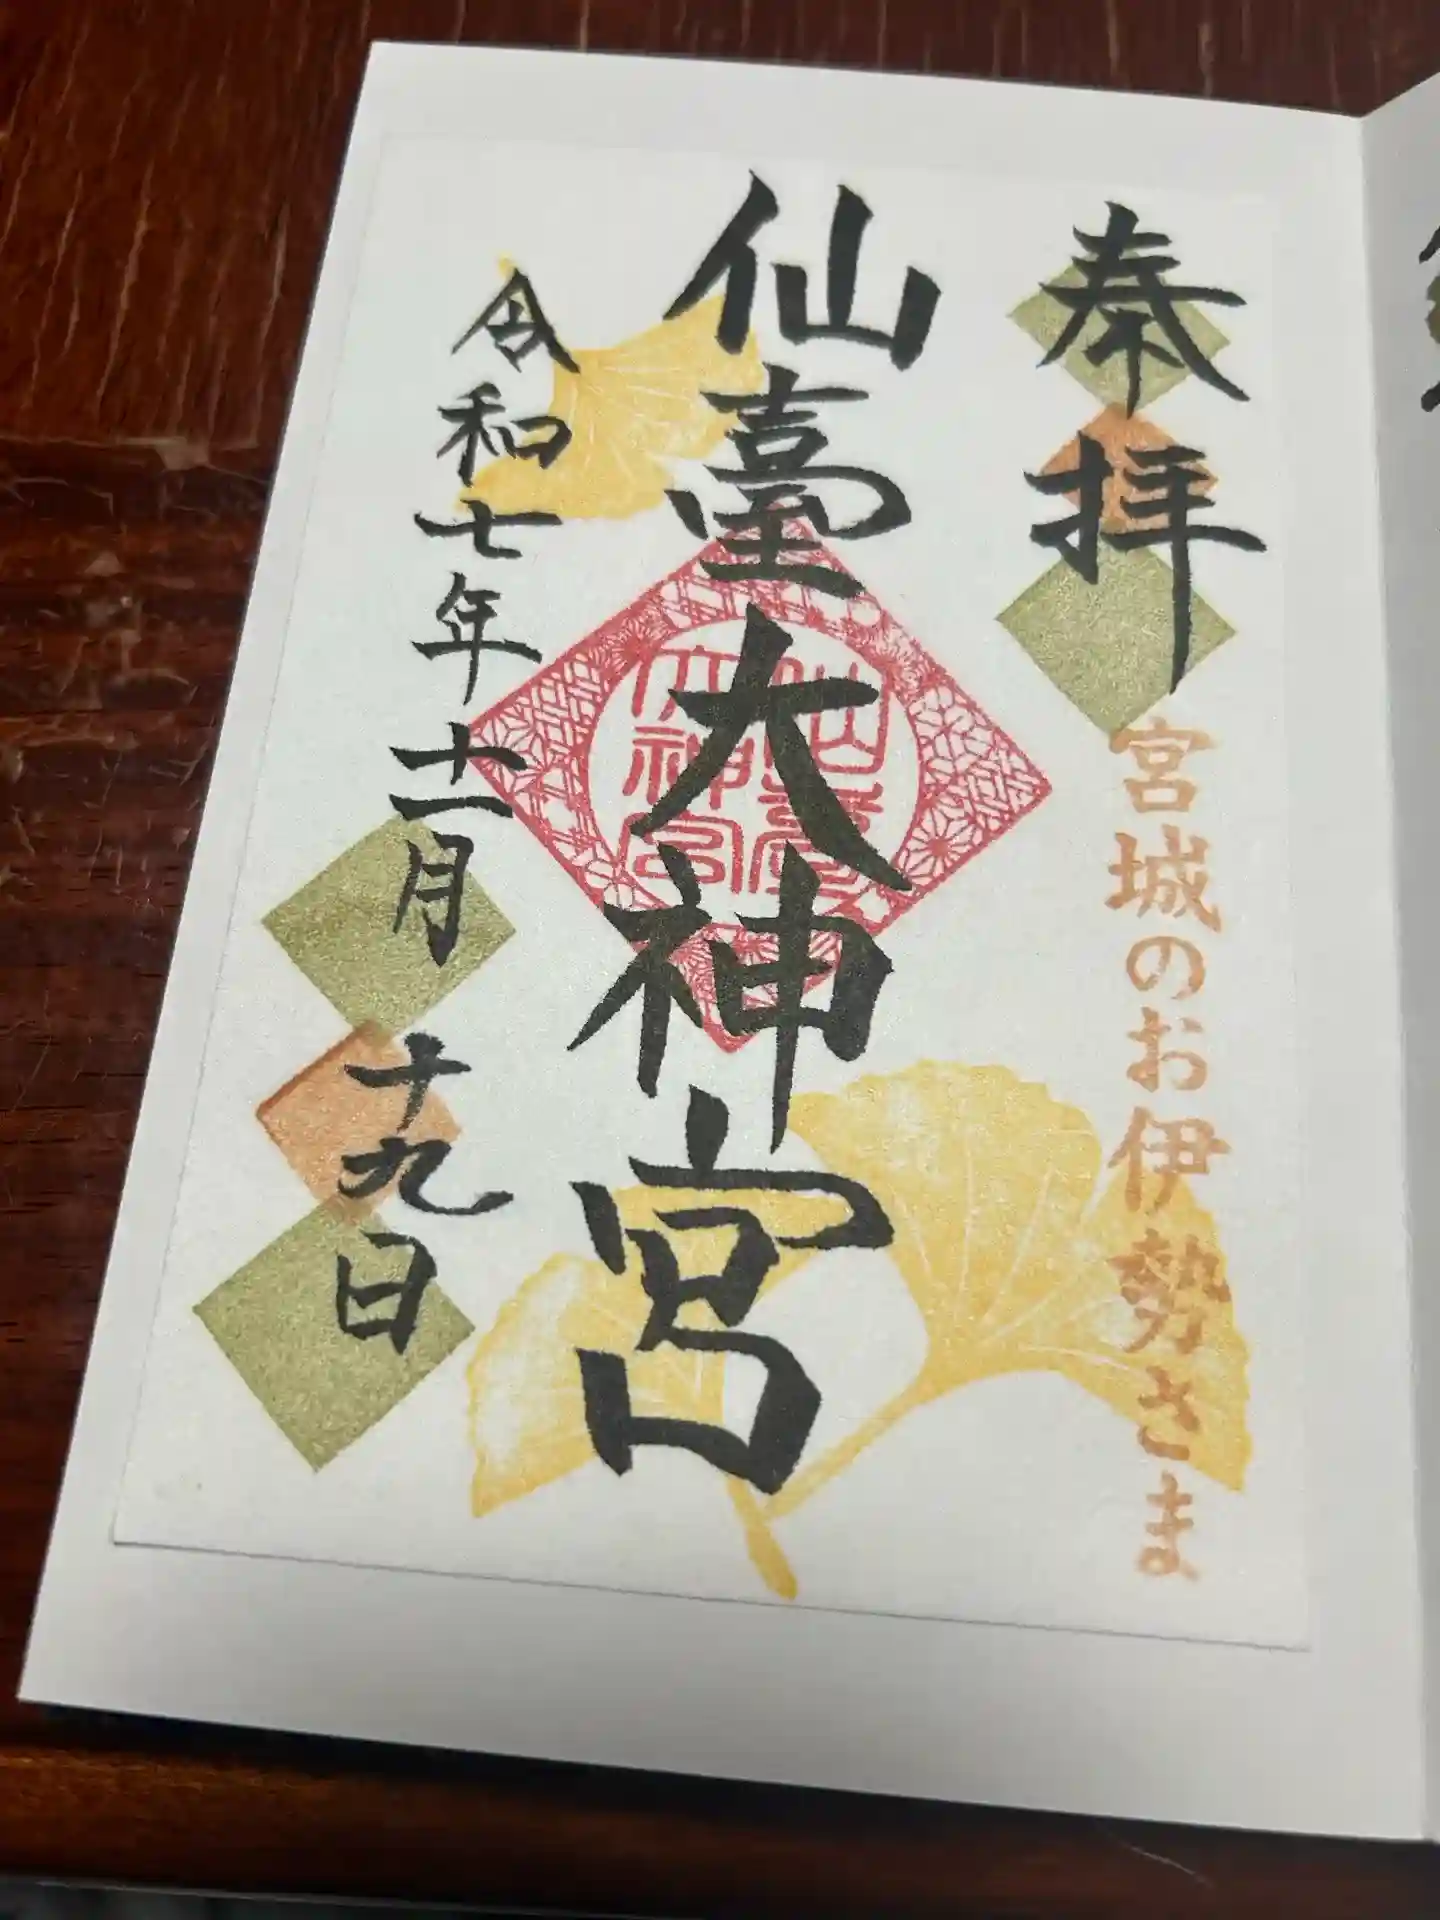 奉拝
宮城のお伊勢さま
仙臺大神宮
仙臺
大神宮
令和七年十一月十九日